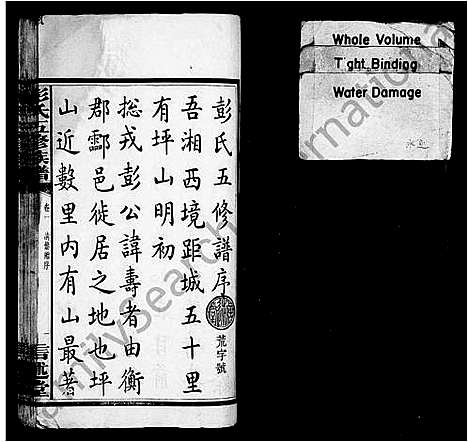 彭氏五修譜序
荒字號
吾湘西境距城五十里
有坪山明初
總戎彭公諱壽者由衡
郡酃邑徙居之地也坪
山近數里内有山最著
彭氏五修族譜
卷一
序
一
信述堂
Whole Volume
Tight Binding
Water Damage
FamilySearch International